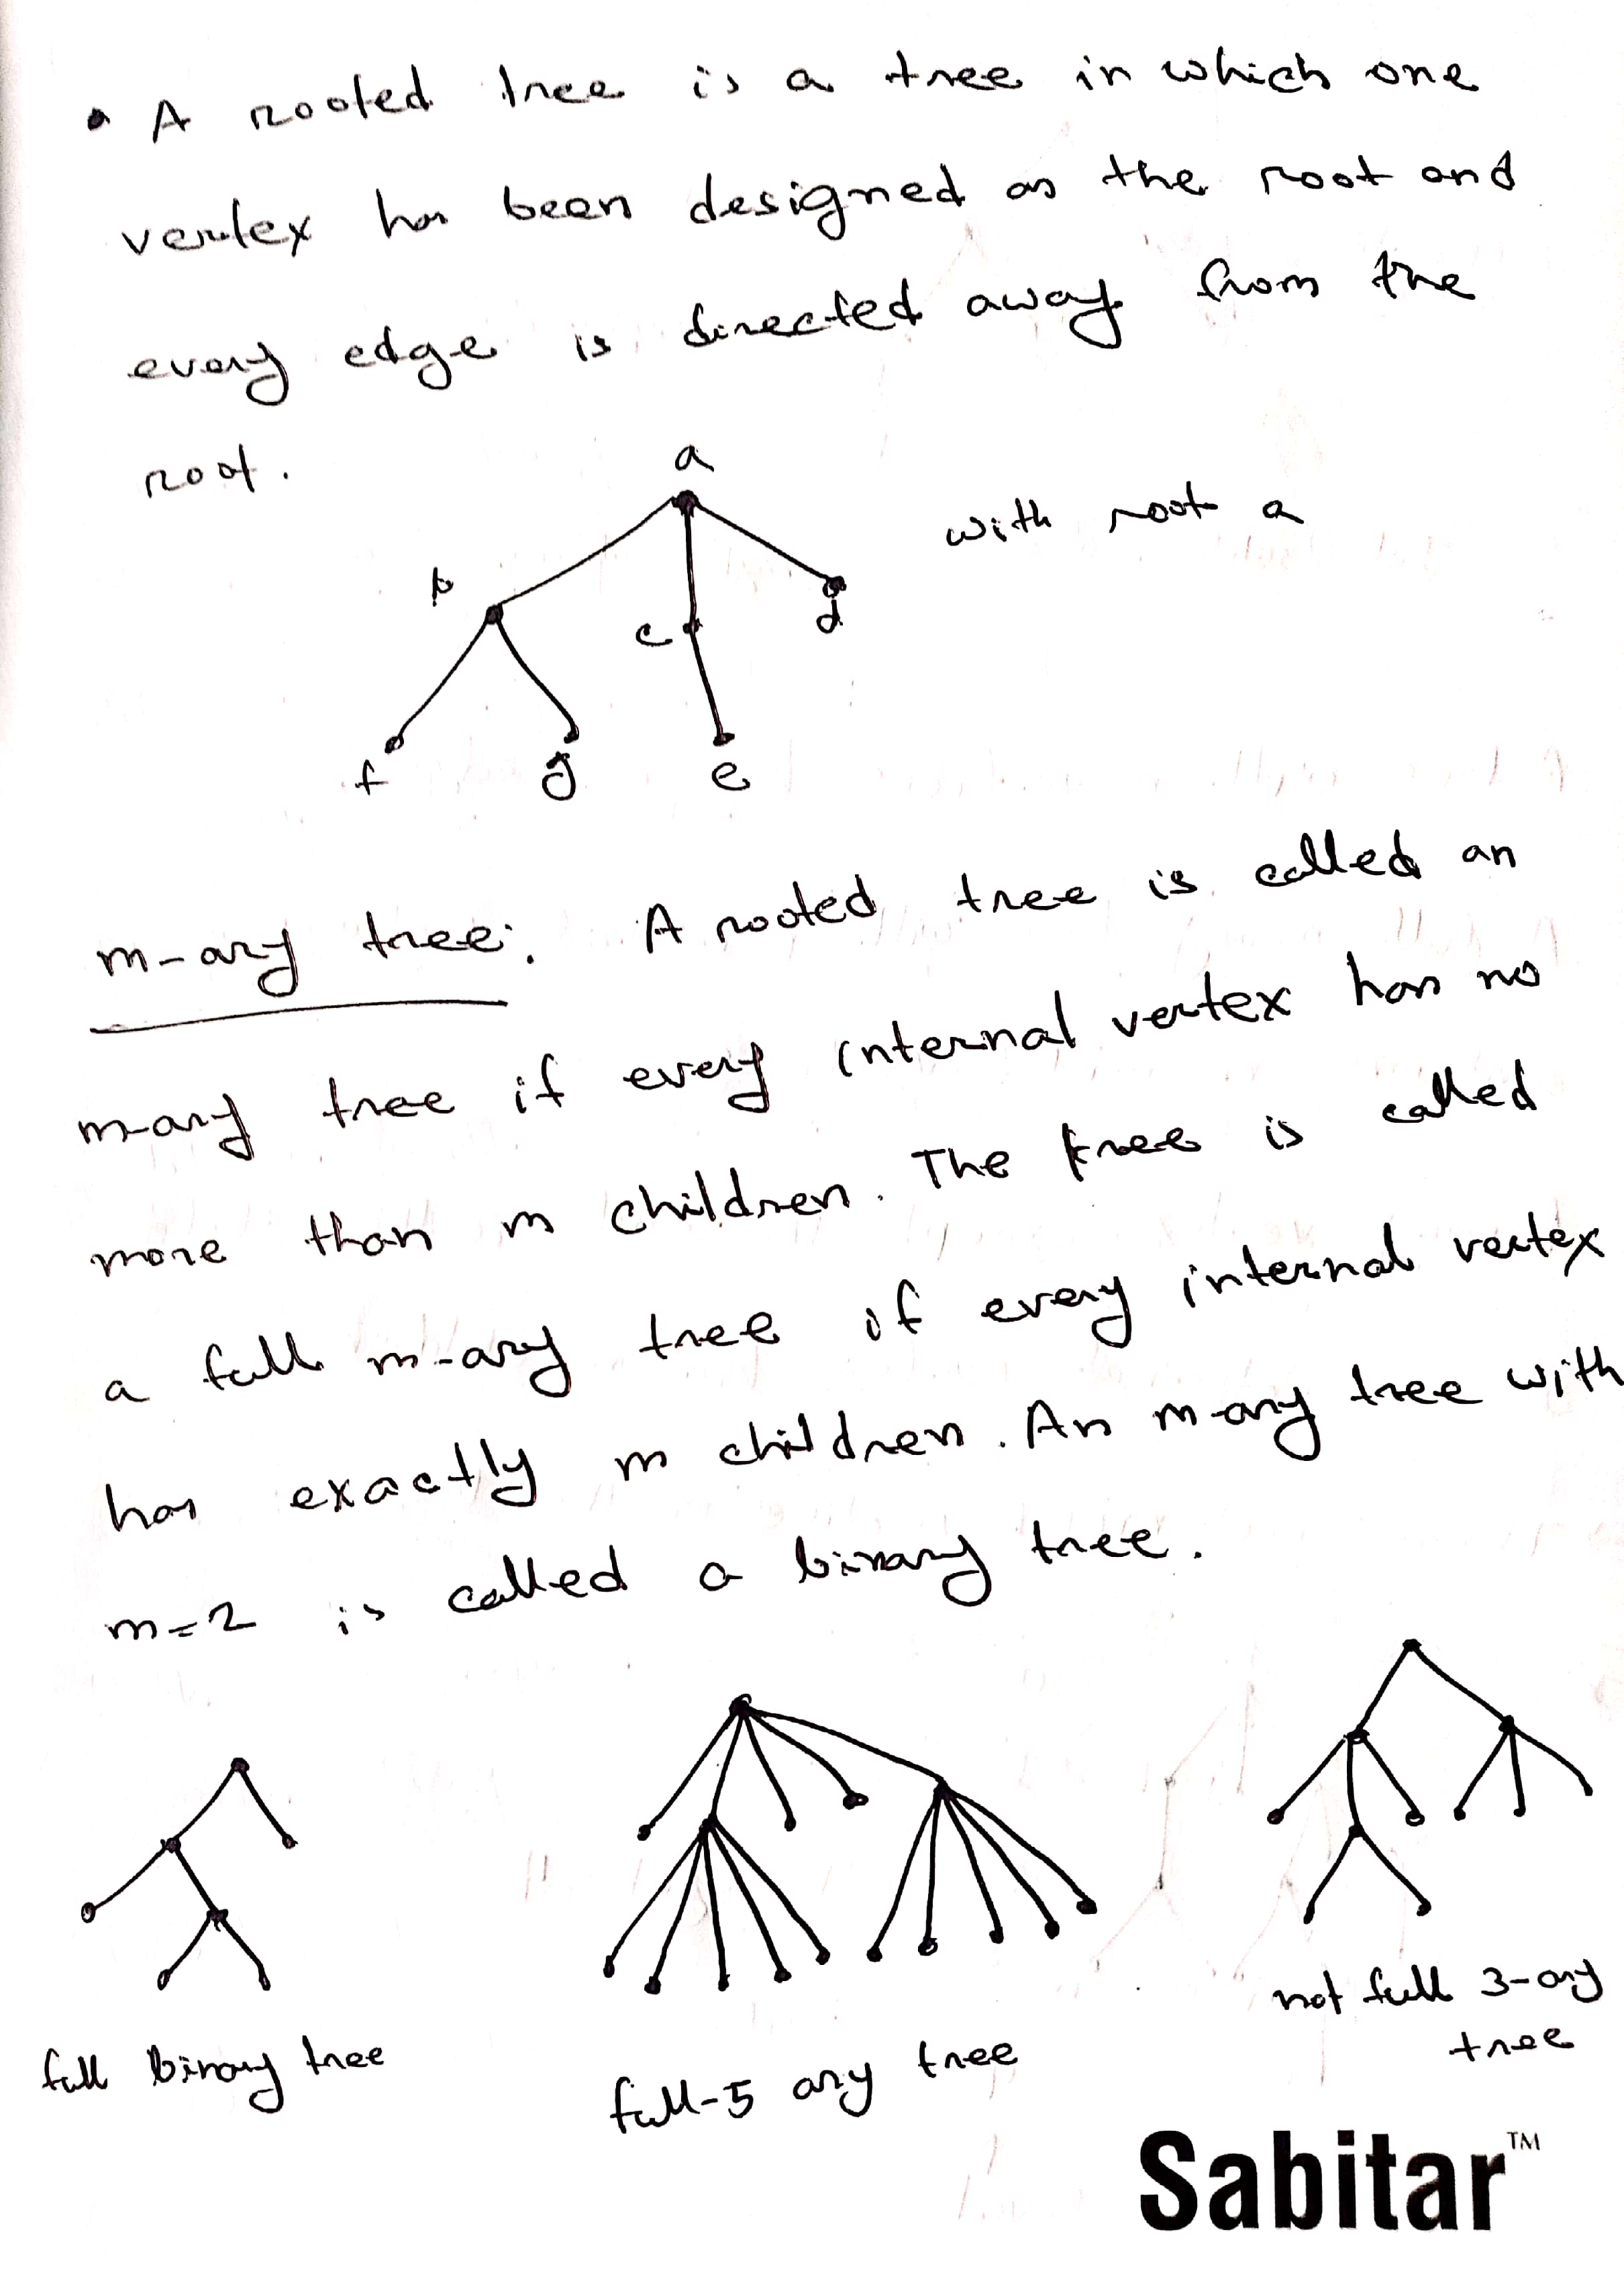 • A rooted tree is a tree in which one
vertex has been designed as the root and
every edge is directed away from the
root.
a
with root a
b
c
d
f
g
e
m-ary tree: A rooted tree is called an
m-ary tree if every internal vertex has no
more than m children. The tree is called
a full m-ary tree if every internal vertex
has exactly m children. An m-ary tree with
m=2 is called a binary tree.
full binary tree
full-5 ary tree
not full 3-ary
tree
Sabitar™